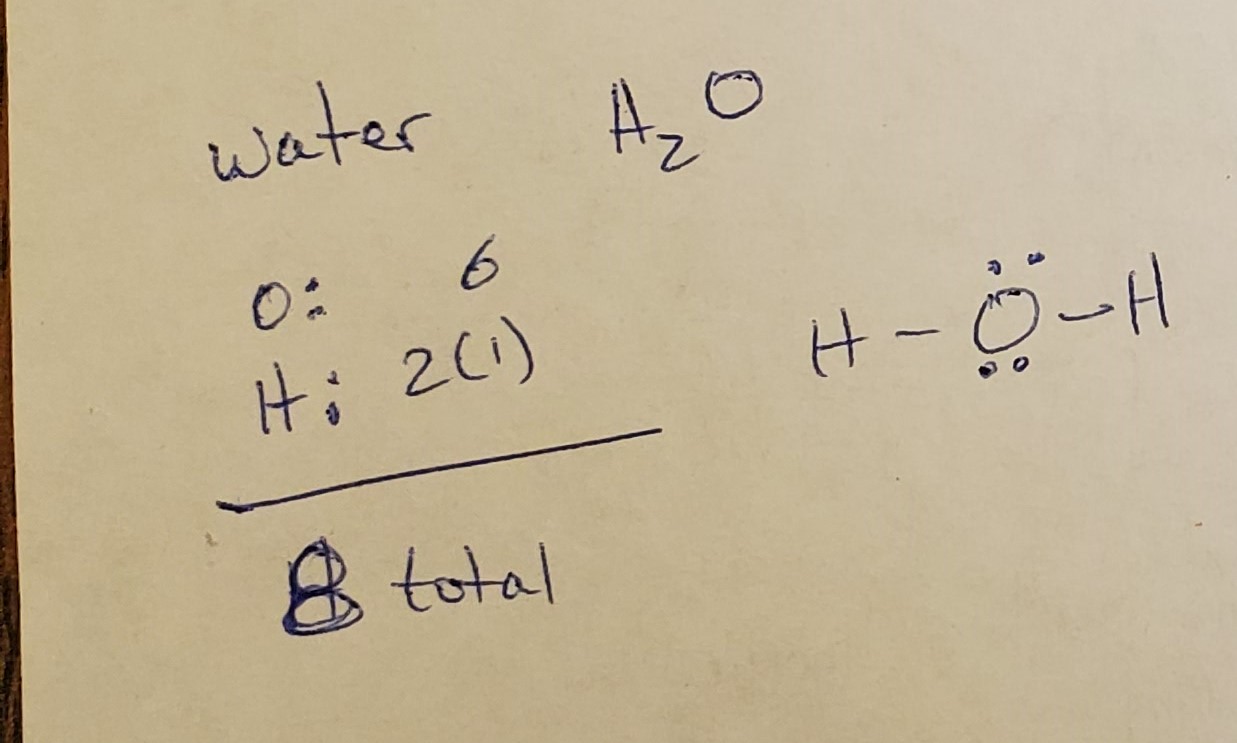 water H₂O
O: 6
H: 2(1)
8 total
H - Ö̤ - H